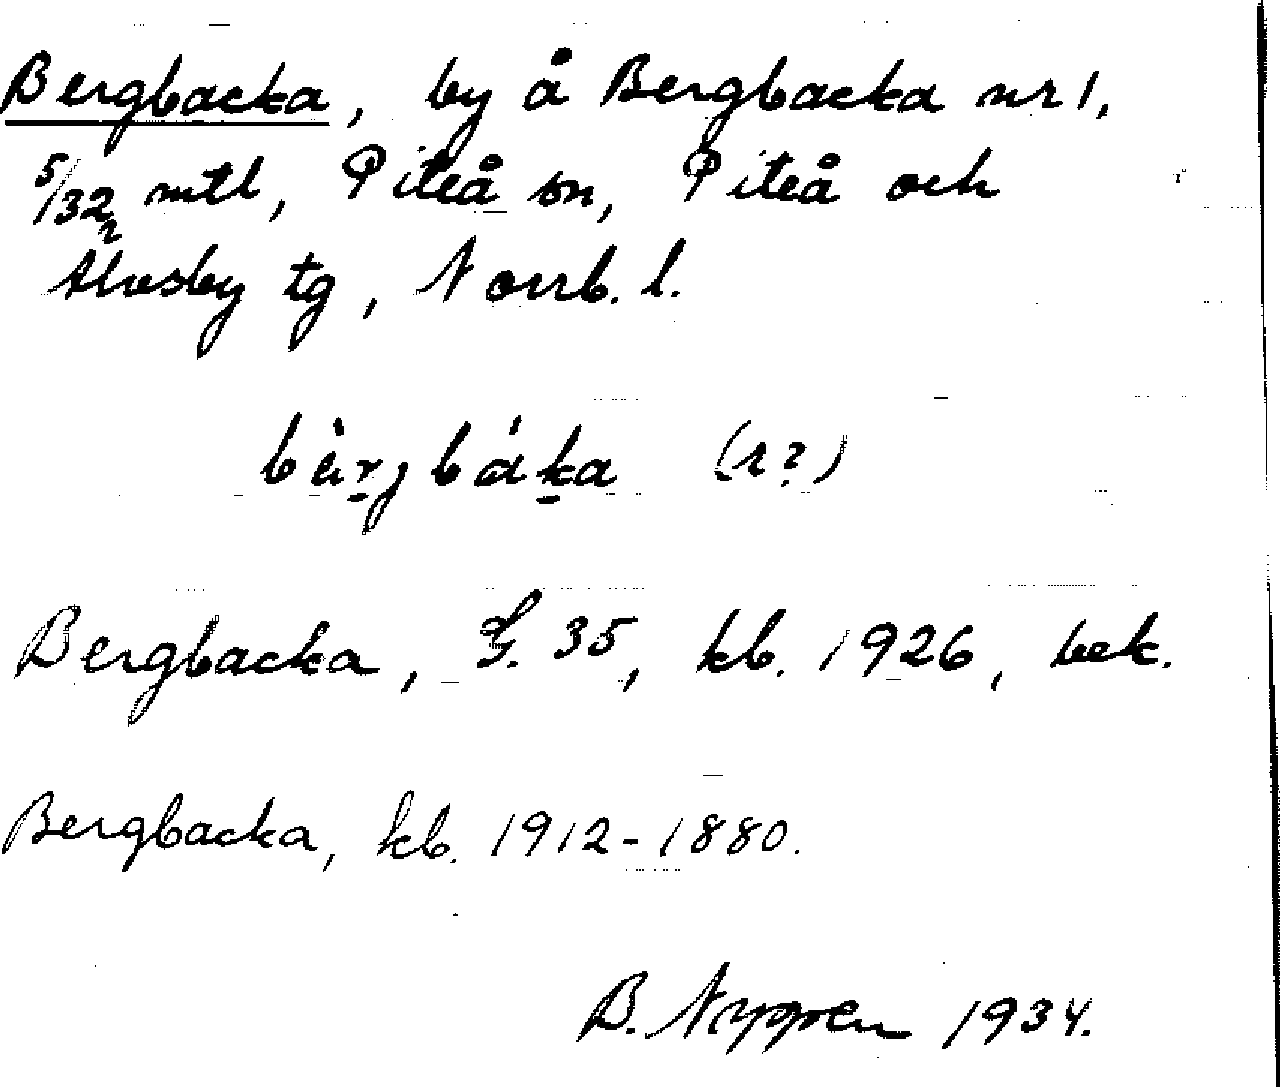 Bergbacka, by å Bergbacka nr 1,
5/32 mtl, Piteå sn, Piteå och
Älvsby tg, Norrb. l.
bàrgbáka (r?)
Bergbacka, G. 35, kb. 1926, bek.
Bergbacka, kb. 1912-1880.
B. 1934.